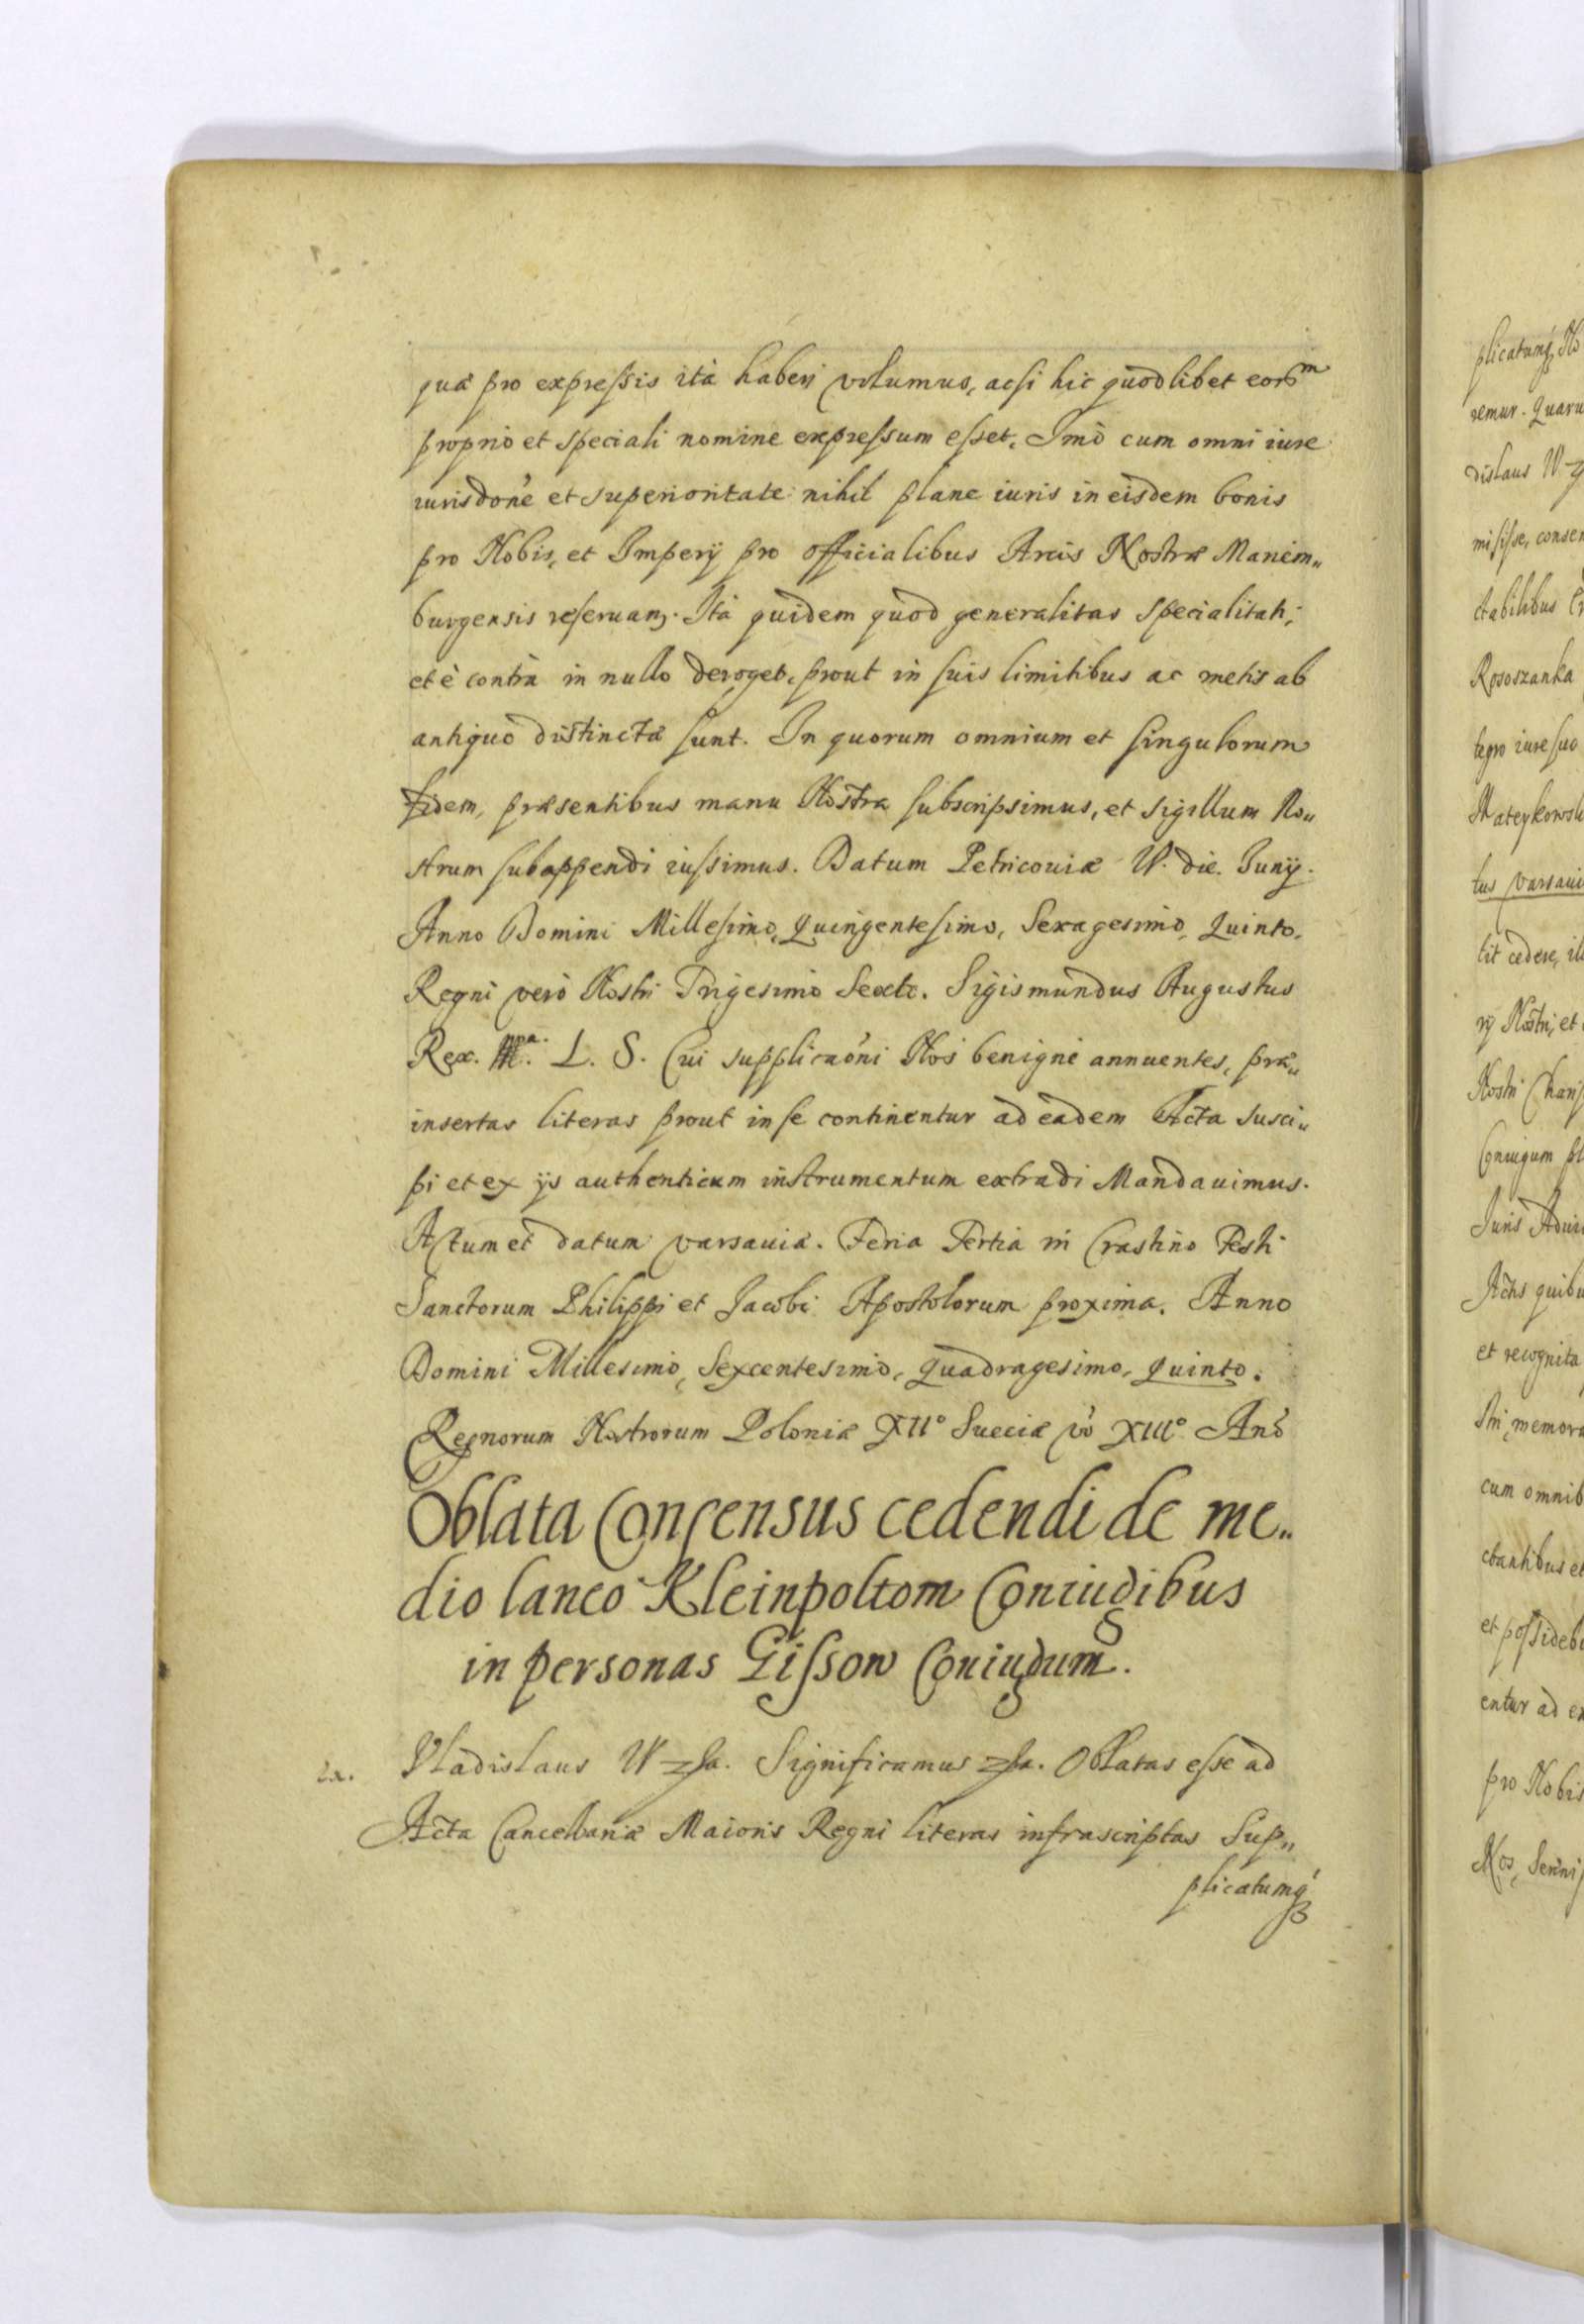 quæ pro expressis ità haberi volumus, acsi hic quodlibet eorum
proprio et speciali nomine expressum esset. Imò cum omni iure
iurisdone et superioritate nihil plane iuris in eisdem bonis
pro Nobis, et Imperÿ pro officialibus Arcis Nostræ Mariem„
burgensis reseruan. Ità quidem quod generalitas specialitati,
et è contrà in nullo deroget, prout in suis limitibus ac metis ab
antiquo distincta sunt. In quorum omnium et singulorum
fidem, præsentibus manu Nostra subscripsimus, et sigillum No„
strum subappendi iussimus. Datum Petricouiæ V. die. Junÿ.
Anno Domini Millesimo, Quingentesimo, Sexagesimo, Quinto.
Regni verò Nostri Trigesimo Sexto. Sigismundus Augustus
Rex. L. S. Cui supplicaõni Nos benignè annuentes, præ„
insertas literas prout in se continentur ad eadem Acta susci„
pi et ex ÿs authenticum instrumentum extradi Mandauimus.
Actum et datum varsauiæ. Feria Tertia in Crastino Festi
Sanctorum Philippi et Jacobi Apostolorum proxima. Anno
Domini Millesimo, Sexcentesimo, Quadragesimo, Quinto.
Regnorum Nostrorum Poloniæ XII° Sueciæ vò XIII° Anõ
Oblata Consensus cedendi de me„
dio laneo Kleinpoltom Coniugibus
in personas Gisson Coniugum.
Vladislaus IV Significamus Oblatas esse ad
Acta Cancellariæ Maioris Regni literas infrascriptas Sup„
plicatumq́
plicatumq́, No
remur. Quaru
dislaus IV
misisse, consen
ctabilibus
Rososzanka
tegro iure suo
Mateykowsk
tus varsaui
tit cedere, il
rÿ Nostri, et
Nostri Chari
Coniugum
Juris Adui
Actis quibu
et recognita
stri, memora
cum omnib
ctantibus et
et possideb
entur ad ex
pro Nobis
Nos, Seri